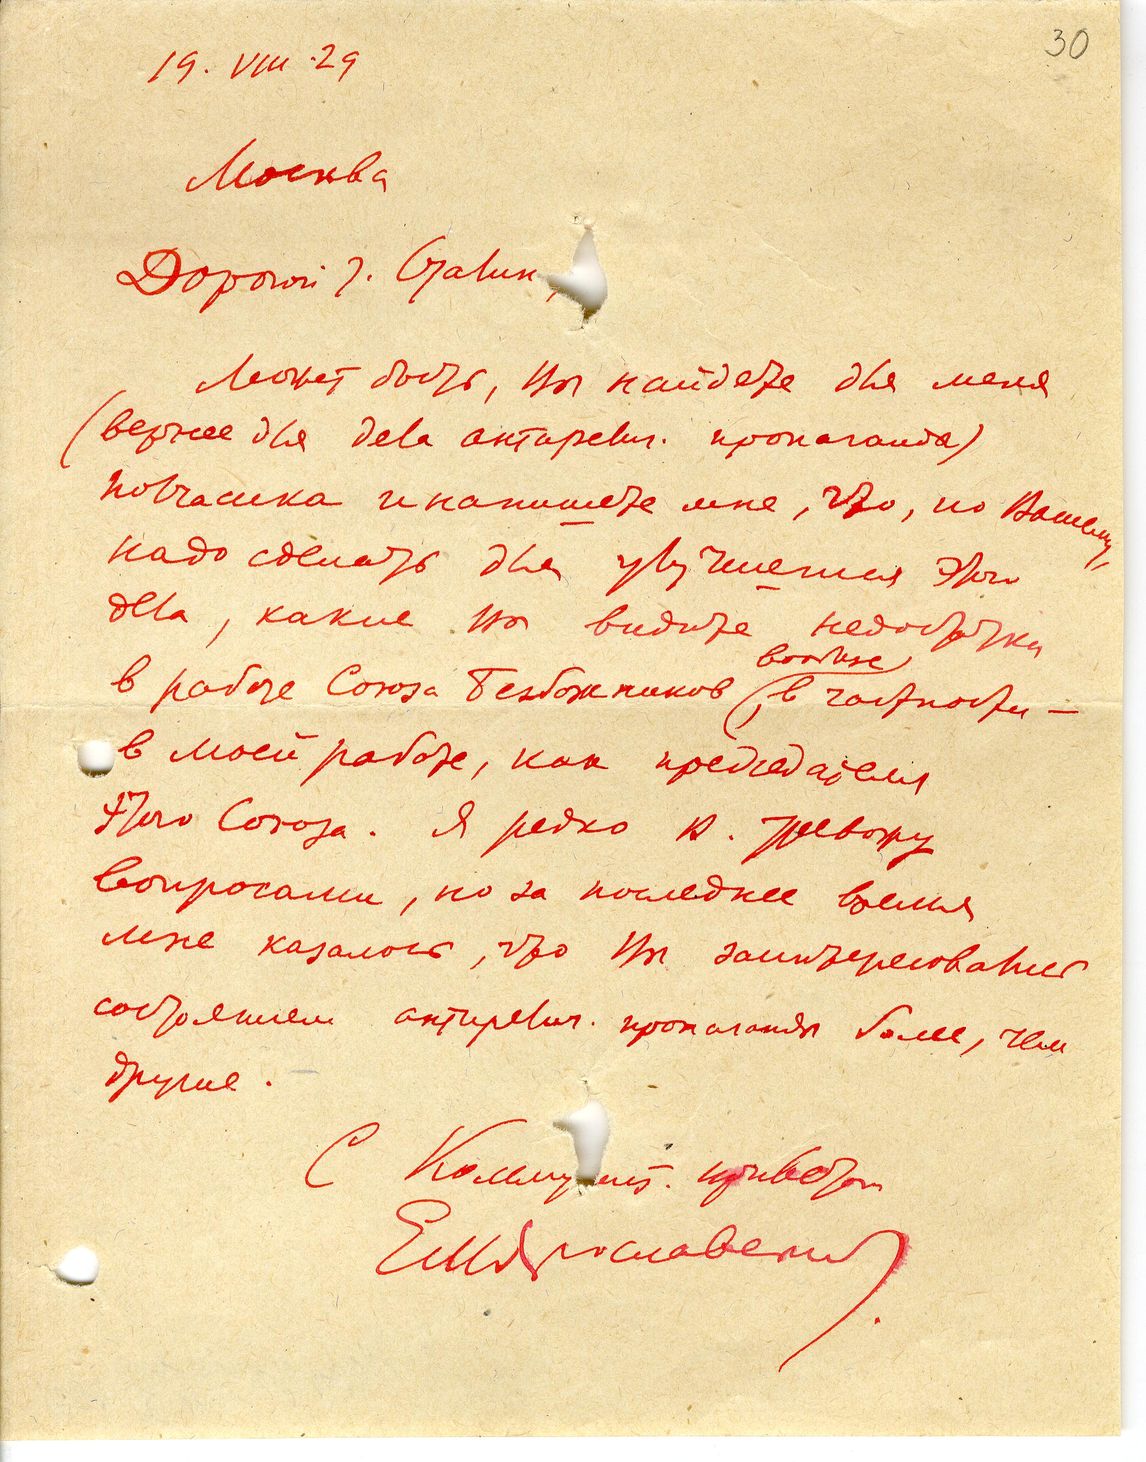 30
19. VIII .29
Москва
Дорогой т. Сталин,
Может быть, Вы найдете для меня
(вернее для дела антирелиг. пропаганды)
полчасика и напишете мне, что, по Вашему,
надо сделать для улучшения этого
дела, какие Вы видите недостатки
в работе Союза Безбожников вообще, в частности –
в моей работе, как председателя
этого Союза. Я редко В. тревожу
вопросами, но за последнее время
мне казалось, что Вы заинтересовались
состоянием антирелиг. пропаганды более, чем
другие.
С Коммунист. приветом
Ем Ярославский.